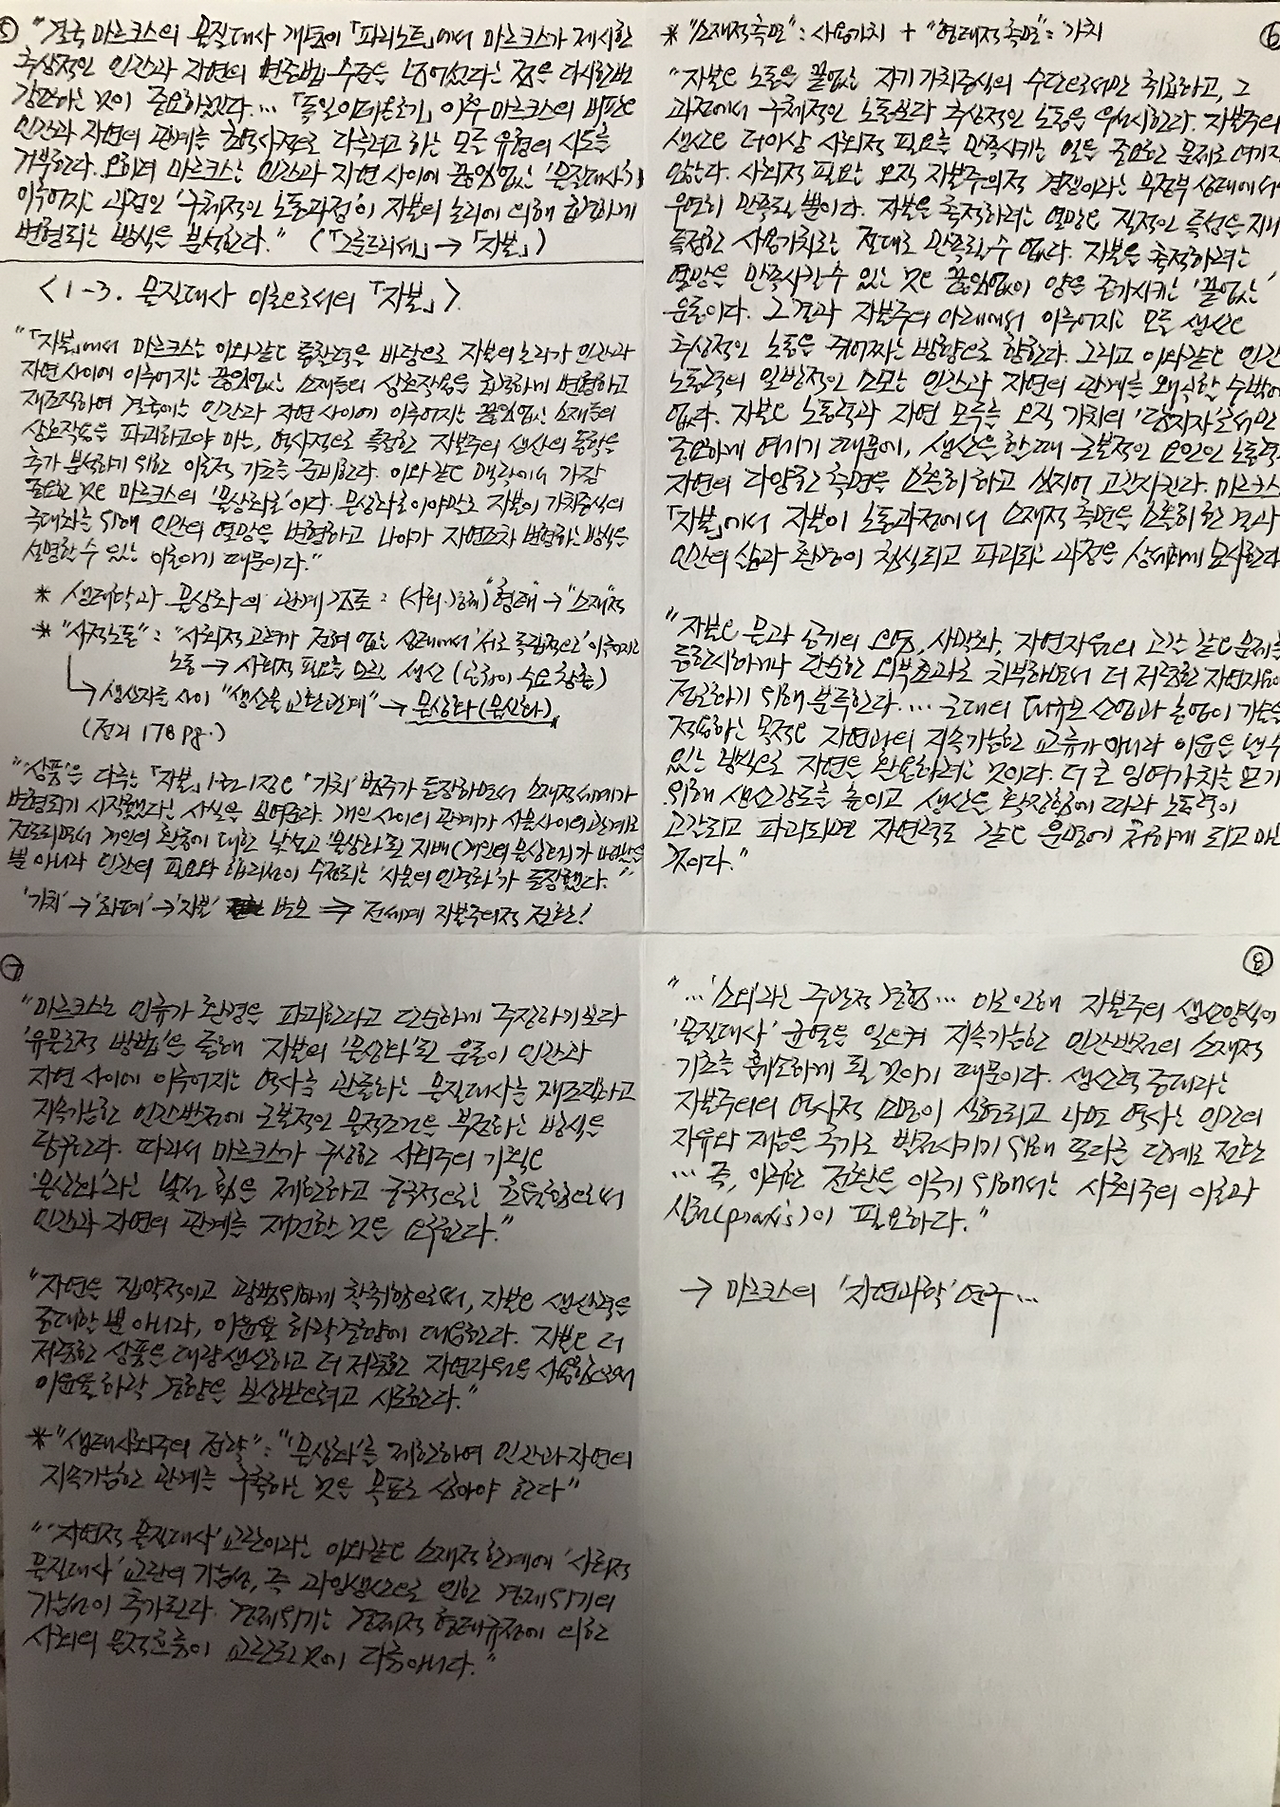 ⑤ "결국 마르크스의 물질대사 개념이 「파리노트」에서 마르크스가 제시한
추상적인 인간과 자연의 변증법 수준을 넘어섰다는 점을 다시한번
강조하는 것이 중요하겠다... 「독일이데올로기」 이후 마르크스의 비판은
인간과 자연의 관계를 다루려고 하는 모든 유형의 시도를
거부한다. 오히려 마르크스는 인간과 자연 사이에 끊임없는 '물질대사'가
이루어지는 과정인 '구체적인 노동과정'이 자본의 논리에 의해 급격하게
변형되는 방식을 분석한다." (「그룬트리세」 → 「자본」)
<1-3. 물질대사 이론으로서의 「자본」>
"「자본」에서 마르크스는 이와같은 통찰력을 바탕으로 자본의 논리가 인간과
자연 사이에 이루어지는 끊임없는 소재들의 상호작용을 급격하게 변형하고
재조직하여 결국에는 인간과 자연 사이에 이루어지는 끊임없는 소재들의
상호작용을 파괴하고야 마는, 역사적으로 특정한 자본주의 생산의 동학을
추가 분석하기 위한 이론적 기초를 준비한다. 이와같은 맥락에서 가장
중요한 것은 마르크스의 '물상화론'이다. 물상화론이야말로 자본이 가치증식의
극대화를 위해 인간의 열망을 변형하고 나아가 자연조차 변형하는 방식을
설명할 수 있는 이론이기 때문이다."
* 생태학과 물상화의 관계 강조 : (사회·경제) "형태" → "소재"적
* "사적노동" : "사회적 고려가 전혀 없는 상태에서 '서로 독립적으로' 이루어지는
노동 → 사회적 필요를 모른 생산 (공급이 수요 창출)
↳ 생산자들 사이 "생산물 교환관계" → 물상화(물신화)
(전괴 178 pg.)
"'상품'을 다루는 「자본」 1권 1장은 '가치' 범주가 등장하면서 소재적 세계가
변형되기 시작했다는 사실을 보여준다. 개인 사이의 관계가 사물 사이의 관계로
전도되면서 개인의 활동에 대한 낯설고 물상화된 지배(개인의 물상화)가
뿐 아니라 인간의 필요와 합리성이 수정되는 '사물의 인격화'가 등장했다."
'가치' → '화폐' → '자본' 범주 ⇒ 전세계 자본주의적 전환!
⑥
* "소재적측면" : 사용가치 + "형태적측면" = 가치
"자본은 노동을 끝없는 자기 가치증식의 수단으로서만 취급하고, 그
과정에서 구체적인 노동보다 추상적인 노동을 우선시한다. 자본주의
생산은 더이상 사회적 필요를 만족시키는 일을 중요한 문제로 여기지
않는다. 사회적 필요는 오직 자본주의적 경쟁이라는 무정부 상태에서
우연히 만족될 뿐이다. 자본을 축적하려는 열망은 질적인 특성을 지니
특정한 사용가치로는 절대로 만족될 수 없다. 자본을 축적하려는
열망을 만족시킬 수 있는 것은 끊임없이 양을 증가시키는 '끝없는'
운동이다. 그 결과 자본주의 아래에서 이루어지는 모든 생산은
추상적인 노동을 쥐어짜는 방향으로 향한다. 그리고 이와같은 인간
노동력의 일방적인 소모는 인간과 자연의 관계를 왜곡할 수밖에
없다. 자본은 노동력과 자연 모두를 오직 가치의 '담지자'로서만
중요하게 여기기 때문에, 생산을 한때 근본적인 요인인 노동력
자연의 다양한 측면을 소홀히하고 심지어 고갈시킨다. 마르크스
「자본」에서 자본이 노동과정에서 소재적 측면을 소홀히 한 결과
인간의 삶과 환경이 침식되고 파괴되는 과정을 상세하게 묘사한다
"자본은 물과 공기의 오염, 사막화, 자연자원의 고갈 같은 문제를
등한시하거나 단순한 외부효과로 치부하면서 더 저렴한 자연자원
위해 분투한다.... 근대의 대규모 산업과 농업이 기술을
적용하는 목적은 자연과의 지속가능한 교류가 아니라 이윤을 낼 수
있는 방식으로 자연을 완용하려는 것이다. 더 큰 잉여가치를 얻기
위해 생산강도를 높이고 생산을 확장함에 따라 노동력이
고갈되고 파괴되면 자연력도 같은 운명에 처하게 되고 마는
것이다."
⑦
"마르크스는 인류가 환경을 파괴한다고 단순하게 주장하기보다
'유물론적 방법'을 통해 자본의 '물상화'된 운동이 인간과
자연 사이에 이루어지는 역사를 관통하는 물질대사를 재조직하고
지속가능한 인간발전에 근본적인 물적조건을 부정하는 방식을
탐구한다. 따라서 마르크스가 구상한 사회주의 기획은
'물상화'라는 낯선 힘을 제한하고 궁극적으로는 초월함으로써
인간과 자연의 관계를 재건할 것을 요구한다."
"자연을 집약적이고 광범위하게 착취함으로써, 자본은 생산력을
증대할 뿐 아니라, 이윤율 하락 경향에 대응한다. 자본은 더
저렴한 상품을 대량생산하고 더 저렴한 자연자원을 사용함으로써
이윤율 하락 경향을 보상받으려고 시도한다."
* "생태사회주의 전략" : "'물상화'를 제한하여 인간과 자연의
지속가능한 관계를 구축하는 것을 목표로 삼아야 한다"
"'자연적 물질대사' 교란이라는 이와같은 소재적 한계에 '사회적
물질대사' 교란의 가능성, 즉 과잉생산으로 인한 경제위기의
가능성이 추가된다. 경제위기는 경제적 형태규정에 의한
사회의 물적흐름이 교란된 것에 다름아니다."
⑧
"...'소외'라는 주관적 경험... 이로 인해 자본주의 생산양식이
'물질대사' 균열을 일으켜 지속가능한 인간발전의 소재적
기초를 훼손하게 될 것이기 때문이다. 생산력 증대라는
자본주의의 역사적 소명이 실현되고 나면 역사는 인간의
자유와 재능을 추가로 발전시키기 위해 또다른 단계로 전환
... 즉, 이러한 전환을 이루기 위해서는 사회주의 이론과
실천(praxis)이 필요하다."
→ 마르크스의 '자연과학' 연구...